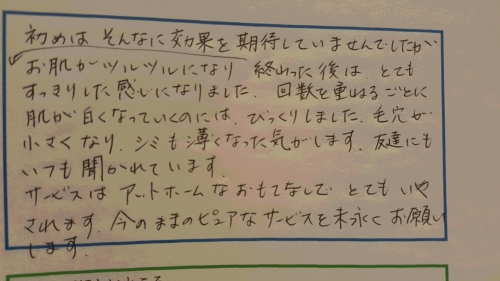 初めは そんなに効果を期待していませんでしたが
お肌がツルツルになり 終わった後は、とても
すっきりした感じになりました。回数を重ねるごとに
肌が白くなっていくのには、びっくりしました。毛穴が
小さくなり、シミも薄くなった気がします。友達にも
いつも聞かれています。
サービスは アットホームなおもてなしで とても いや
されます。今のままのピュアなサービスを末永く お願い
します。